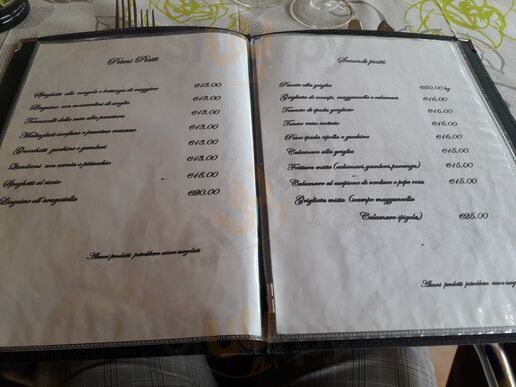 Primi Piatti
Spaghetti alle vongole e bottarga di muggine €13.00
Linguine con mazzancolle di scoglio €13.00
Troccoli della casa alla pescatora €13.00
Maltagliati scorfano e pecorino romano €13.00
Gnocchetti zucchine e gamberi €13.00
Scialatielli con cernia e pistacchio €13.00
Spaghetti al riccio €18.00
Linguine all'aragostella €20.00
Alcuni prodotti potrebbero essere surgelati
Secondi piatti
Pescato alla griglia €50.00 kg
Grigliata di scampi, mazzancolle e calamaro €16.00
Trancio di spada grigliato €15.00
Tonno rosso scottato €16.00
Pesce spada cipolla e zucchine €15.00
Calamaro alla griglia €15.00
Frittura mista (calamari,gamberi,paranza) €15.00
Calamaro al carpione di verdure e pepe rosa €15.00
Grigliata mista (scampo mazzancolla
Calamaro spigola) €25.00
Alcuni prodotti potrebbero essere surgelati